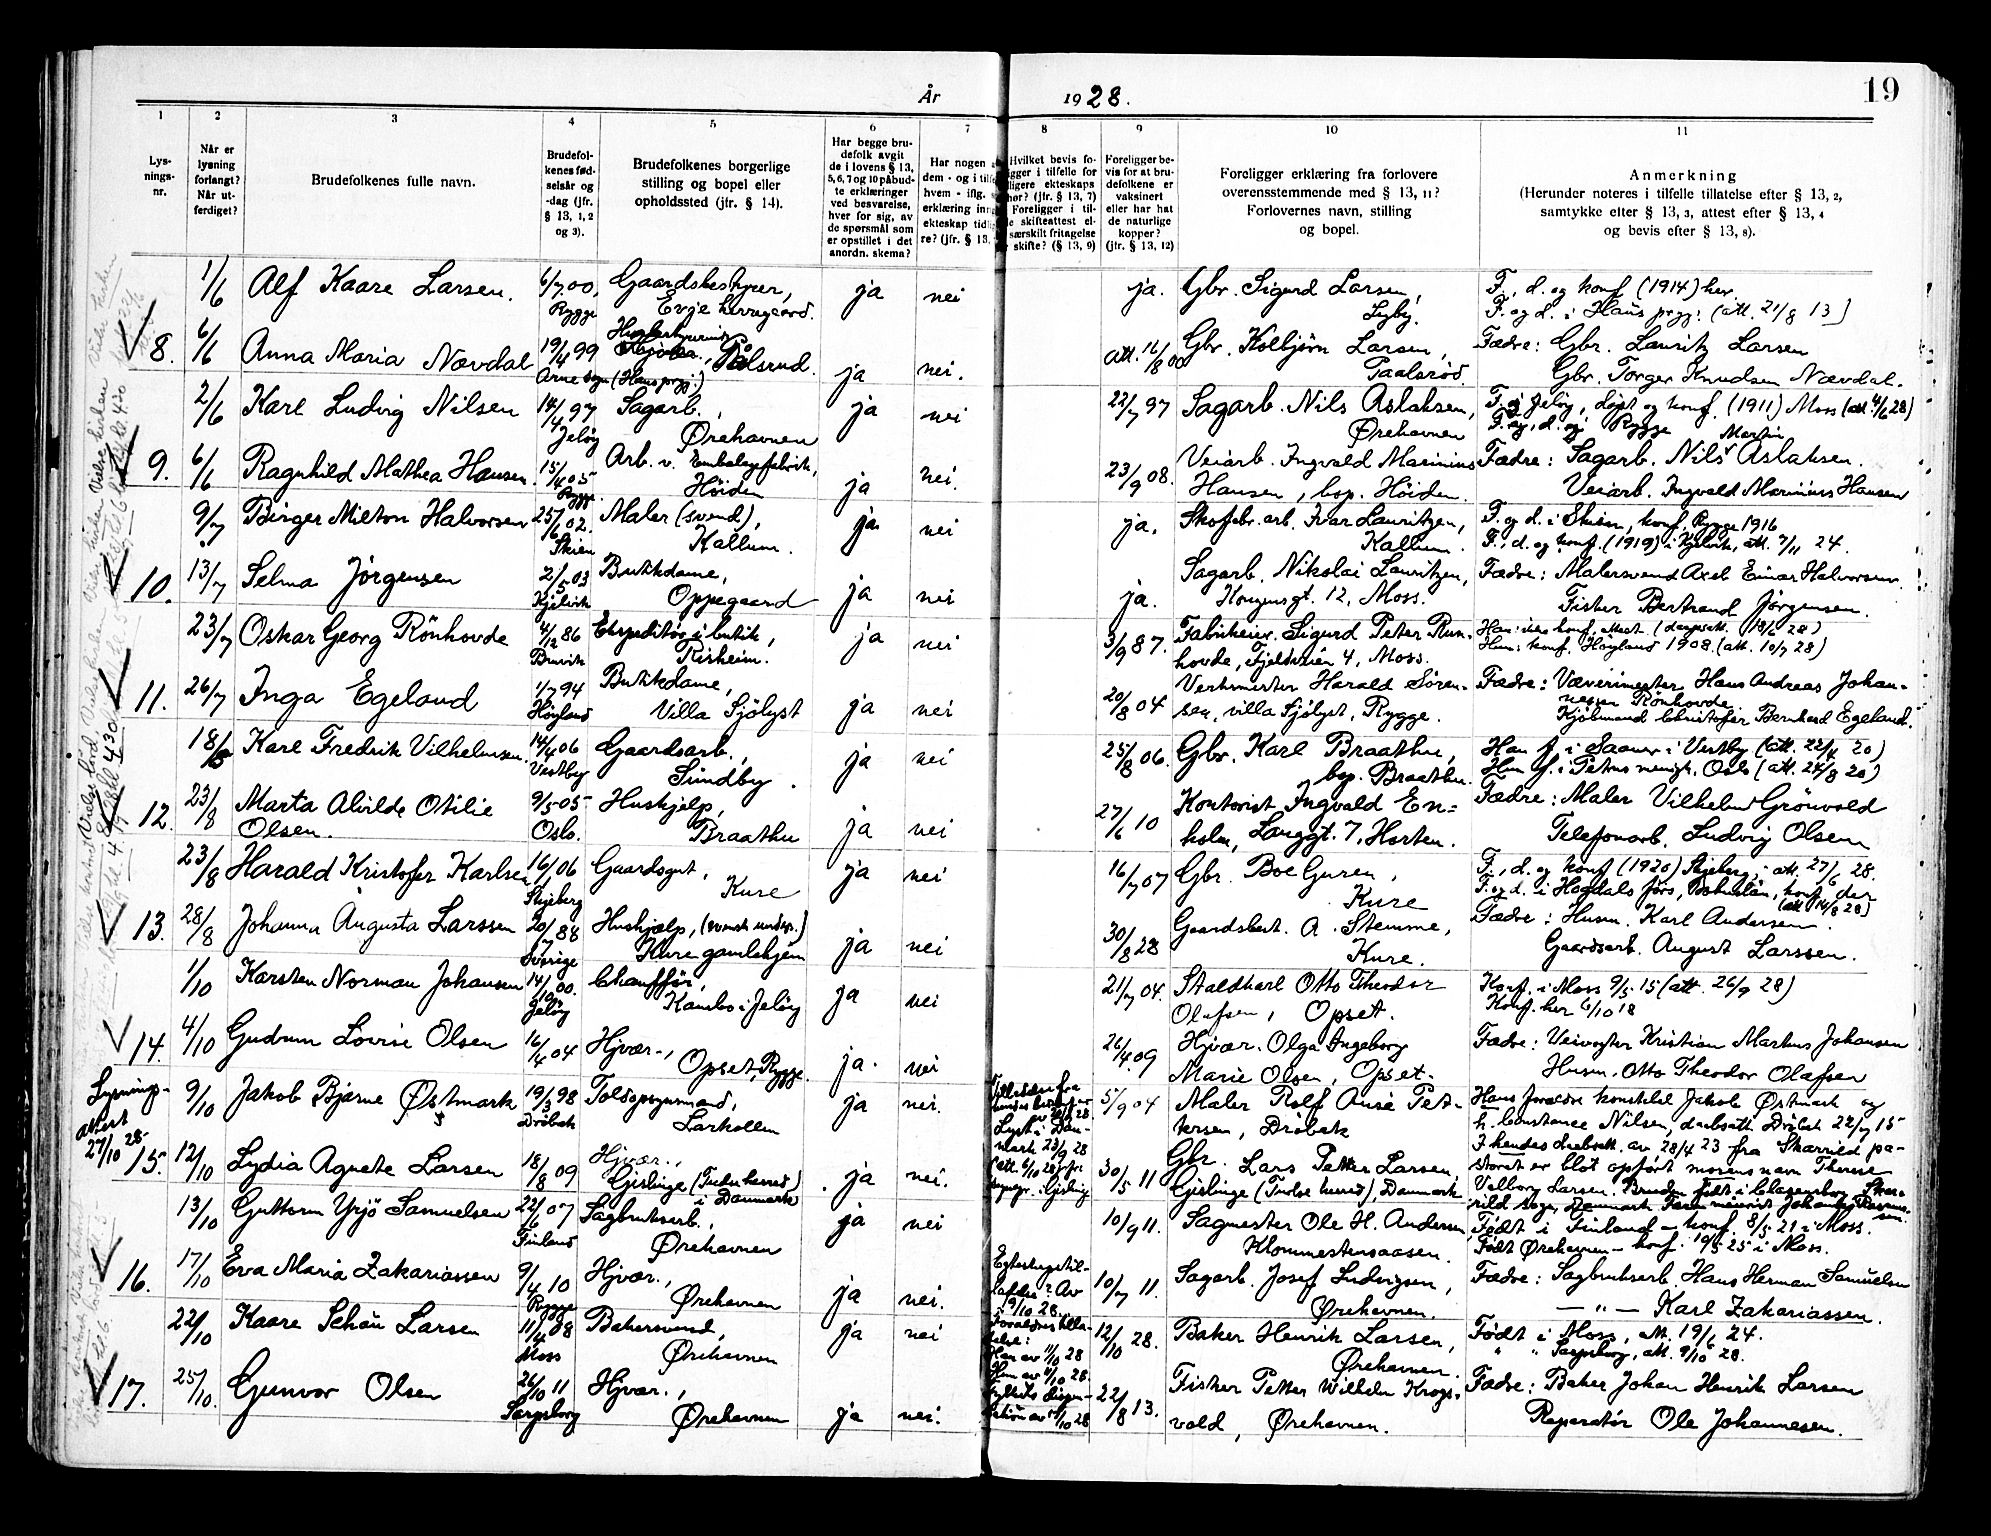 År 1928.
19
1
2
3
4
5
6
7
8
9
10
11
Lys-
nings-
nr.
Når er
lysning
forlangt?
Når ut-
ferdiget?
Brudefolkenes fulle navn.
Brudefol-
kenes fød-
selsår og
-dag (jfr.
§ 13, 1, 2
og 3).
Brudefolkenes borgerlige
stilling og bopel eller
opholdssted (jfr. § 14).
Har begge bru-
defolk avgit
de i lovens § 13,
5, 6, 7 og 10 påbud-
te erklæringer
ved besvarelse,
hver for sig, av
de spørsmål som
er opstillet i det
anordn. skema?
Har nogen
dem - og i tilf
hvem - iflg.
erklæring inn
ekteskap tidl
re? (jfr. § 13,
Hvilket bevis fo-
ligger i tilfelle for
tidligere ekteskaps
ophør? (jfr. § 13, 7)
Foreligger i til-
skifteattest el-
særskilt fritagelse
skifte? (§ 13, 9)
Foreligger be-
vis for at bru-
defolkene er
vaksinert
eller har hat
de naturlige
kopper?
(jfr. § 13, 12)
Foreligger erklæring fra forlovere
overensstemmende med § 13, 11?
Forlovernes navn, stilling
og bopel.
Anmerkning
(Herunder noteres i tilfelle tillatelse efter § 13, 2,
samtykke efter § 13, 3, attest efter § 13, 4
og bevis efter § 13, 8).
8.
1/6 Alf Kaare Larsen. 6/7 00, Rygge Gaardsbestyrer, Evje herregaard. ja nei ja. Gbr. Sigurd Larsen, Lyby. F., d. og konf. (1914) her.
F. og d. i Haus prgj. (att. 21/8 13)
6/6 Anna Maria Nævdal 19/4 99 Arne sogn (Haus prgj.) Husbestyrerinde, Pålsrud. ja nei. att. 16/8 00 Gbr. Kolbjørn Larsen, Paalsrød. Fædre: Gbr. Lauritz Larsen
Gbr. Torger Knudsen Nævdal.
9.
2/6 Karl Ludvig Nilsen 14/4 97 Jeløy Sagarb., Ørehavnen ja nei 22/7 97 Sagarb. Nils Aslaksen, Ørehavnen F. i Jeløy, døpt og konf. (1911) Moss (att. 4/6 28)
F. og d. i Rygge
6/6 Ragnhild Mathea Hansen. 15/4 05 Rygge. Arb. v. Emballagefabrik, Höiden ja nei. 23/9 08. Veiarb. Ingvald Marinius Hansen, bop. Höiden. Fædre: Sagarb. Nils Martin Aslaksen.
Veiarb. Ingvald Marinius Hansen
10.
9/7 Birger Milton Halvorsen 25/6 02. Skien Maler (svend), Kallum. ja nei ja. Skofabr. arb. Ivar Lauritzen, Kallum. F. og d. i Skien, konf. Rygge 1916
F., d. og konf. (1919) i Kjelvik, att. 7/11 24.
13/7 Selma Jörgensen 2/5 03 Kjelvik Butikdame, Oppegaard ja nei ja. Sagarb. Nikolai Lauritzen, Kongensgt. 12, Moss. Fædre: Malersvend Axel Einar Halvorsen
Fisker Bertrand Jørgensen.
11.
23/7 Oskar Georg Rönhovde 4/12 86 Bruvik Ekspeditör i butik, Risheim. ja nei 3/9 87. Fabrikeier Sigurd Peter Runhovde, Fjeldveien 4, Moss. Hun: konf. Høyland 1908. (att. 10/7 28)
26/7 Inga Egeland 1/7 94 Höyland Butikdame, Villa Sjölyst ja nei 20/8 04 Verksmester Harald Sörensen, villa Sjölyst, Rygge. Fædre: Væverimester Hans Andreas Johannessen Rönhovde.
Kjøbmand Christofer Bernhard Egeland.
12.
18/8 Karl Fredrik Vilhelmsen. 14/4 06 Vestby Gaardsarb., Sundby. ja nei 25/8 06. Gbr. Karl Braathu, bop. Braathu. Han f. i Saaner i Vestby (att. 22/4 20)
Hun f. i Petrus menigh. Oslo (att. 24/8 20)
23/8 Marta Alvilde Otilie Olsen. 9/5 05 Oslo. Hushjelp, Braathu ja nei 27/6 10 Kontorist Ingvald Enholm, Langgt. 7, Horten. Fædre: Maler Vilhelm Grönvold
Telefonarb. Ludvig Olsen
13.
23/8 Harald Kristofer Karlsen 16/ 06 Skjeberg Gaardsgut, Kure ja nei 16/7 07 Gbr. Boe Guren, Kure F., d. og konf. (1920) Skjeberg, att. 27/6 28.
F. og d. i Hogdals förs, Bohuslän, konf. der (att. 14/8 28)
28/8 Johanna Augusta Larssen 20/7 88 Sverige Hushjælp, (svensk unders.) Kure gamlehjem ja nei 30/8 28 Gaardsbest. A. Stemme, Kure. Fædre: Husm. Karl Andersen.
Gaardsarb. August Larssen.
14.
1/10 Karsten Norman Johansen 14/10 00. Jelöy Chauffför, Kambo i Jelöy ja nei 21/7 04. Staldkarl Otto Theodor Olafsen, Opset. Konf. i Moss 9/5 15 (att. 26/9 28)
Konf. her 6/10 18
4/10 Gudrun Lovise Olsen 16/4 04 Hjvær., Opset, Rygge. ja. nei 26/4 09 Hjvær. Olga Ingeborg Marie Olsen, Opset. Fædre: Veivogter Kristian Martius Johansen
Husm. Otto Theodor Olafsen
Lysnings-
attest
27/10 28
15.
9/10 Jakob Bjarne Østmark 19/3 98 Dröbak Toldopsynsmand, Larkollen ja nei. 5/9 04 Maler Rolf Aune Pettersen, Dröbak Hans foreldre konstabel Jakob Østmark og
h. Constance Nilsen, daabsatt. Dröbak 22/7 15
12/10 Lydia Agnete Larsen 18/8 09 Hjvær., Gislinge (Tudse herred) i Danmark ja nei. 30/5 11 Gbr. Lars Petter Larsen, Gislinge (Tudse herred), Danmark I hendes daabsatt. av 28/4 23 fra Skarrild pastorat er blot opført morens navn Therese
Valborg Larsen.
16.
13/10 Guttorm Yrjö Samuelsen 22/6 07 Finland Sagbruksarb., Ørehavnen ja nei 10/9 11. Sagmester Ole H. Andersen, Klommestensaasen. Født i Finland – konf. 8/5 21 i Moss.
Født Ørehavnen – konf. 10/5 25 i Moss.
17/10 Eva Maria Zakariassen 9/4 10 Rygge Hjvær., Ørehavnen ja nei. 10/7 11. Sagarb. Josef Ludvigsen, Ørehavnen. Fædre: Sagbruksarb. Hans Herman Samuelsen
— " — Karl Zakariassen.
17.
22/10 Kaare Schau Larsen 11/4 08 Moss Bakersvend, Ørehavnen ja nei 12/10 28. Baker Henrik Larsen, Ørehavnen. Født i Moss, att. 19/6 24.
" " Sarpsborg, att. 9/10 28.
25/10. Gunvor Olsen 26/10 11 Sarpsborg Hjvær., Ørehavnen ja nei. 22/8 13. Fisker Petter Wilhelm Krogsvold, Ørehavnen. Fædre: Baker Johan Henrik Larsen
Reparatör Ole Johannesen.